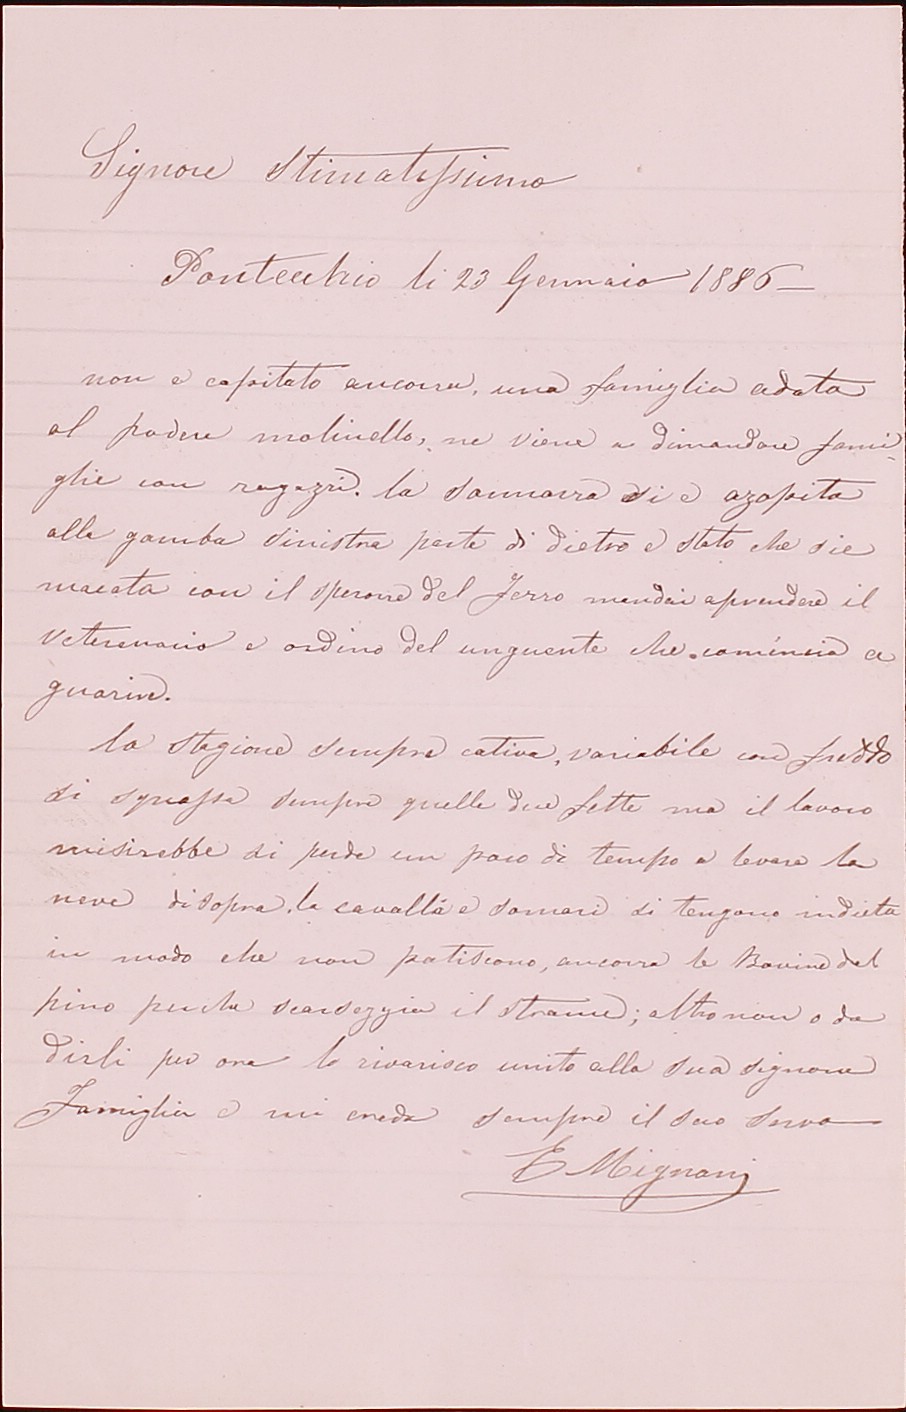 Signore Stimatissimo
Pontecchio li 23 Gennaio 1886
non e capitato ancora, una famiglia adata
al podere molinello, ne viene a dimandare fami-
glie con ragazzi. la somarra si e azopita
alla gamba sinistra parte di dietro e stato che sie
macata con il sperone del Ferro mandai aprendere il
veterenario e ordino del unguente che comincia a
guarire.
la stagione sempre cativa, variabile con freddo
si squassa sempre quelle due fette ma il lavoro
misirebbe si perde un poco di tempo a levare la
neve disopra, la cavalla e somari si tengono indieta
in modo che non patiscono, ancorra le Bovine del
pino perche scarseggia il strame; altro non o da
dirli per ora lo riverisco unito alla sua signora
Famiglia e mi creda sempre il suo servo
E Mignani